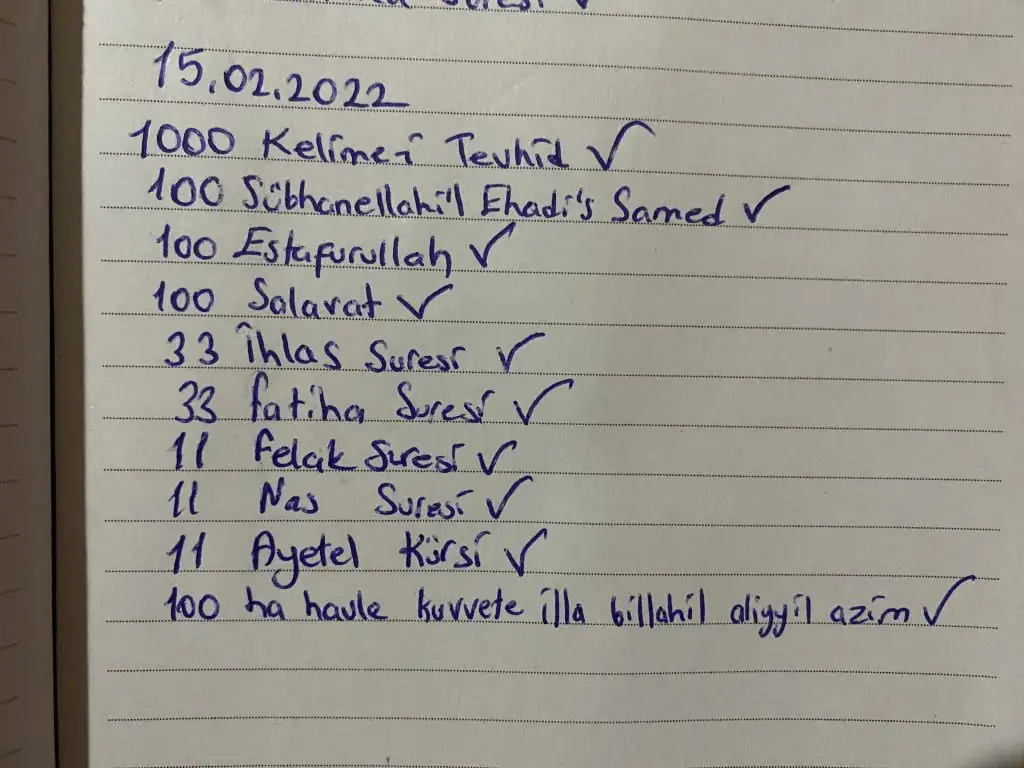 Suresi ✓
15.02.2022
1000 Kelime-i Tevhid ✓
100 Sübhanellahi'l Ehadi's Samed ✓
100 Estafurullah ✓
100 Salavat ✓
33 İhlas Suresi ✓
33 fatiha Suresi ✓
11 felak Suresi ✓
11 Nas Suresi ✓
11 Ayetel Kürsi ✓
100 ha havle kuvvete illa billahil aliyyil azim ✓